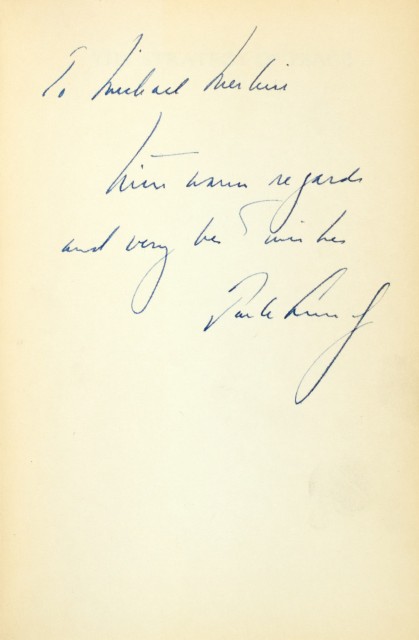 To Michael
With warm regards
and very best wishes